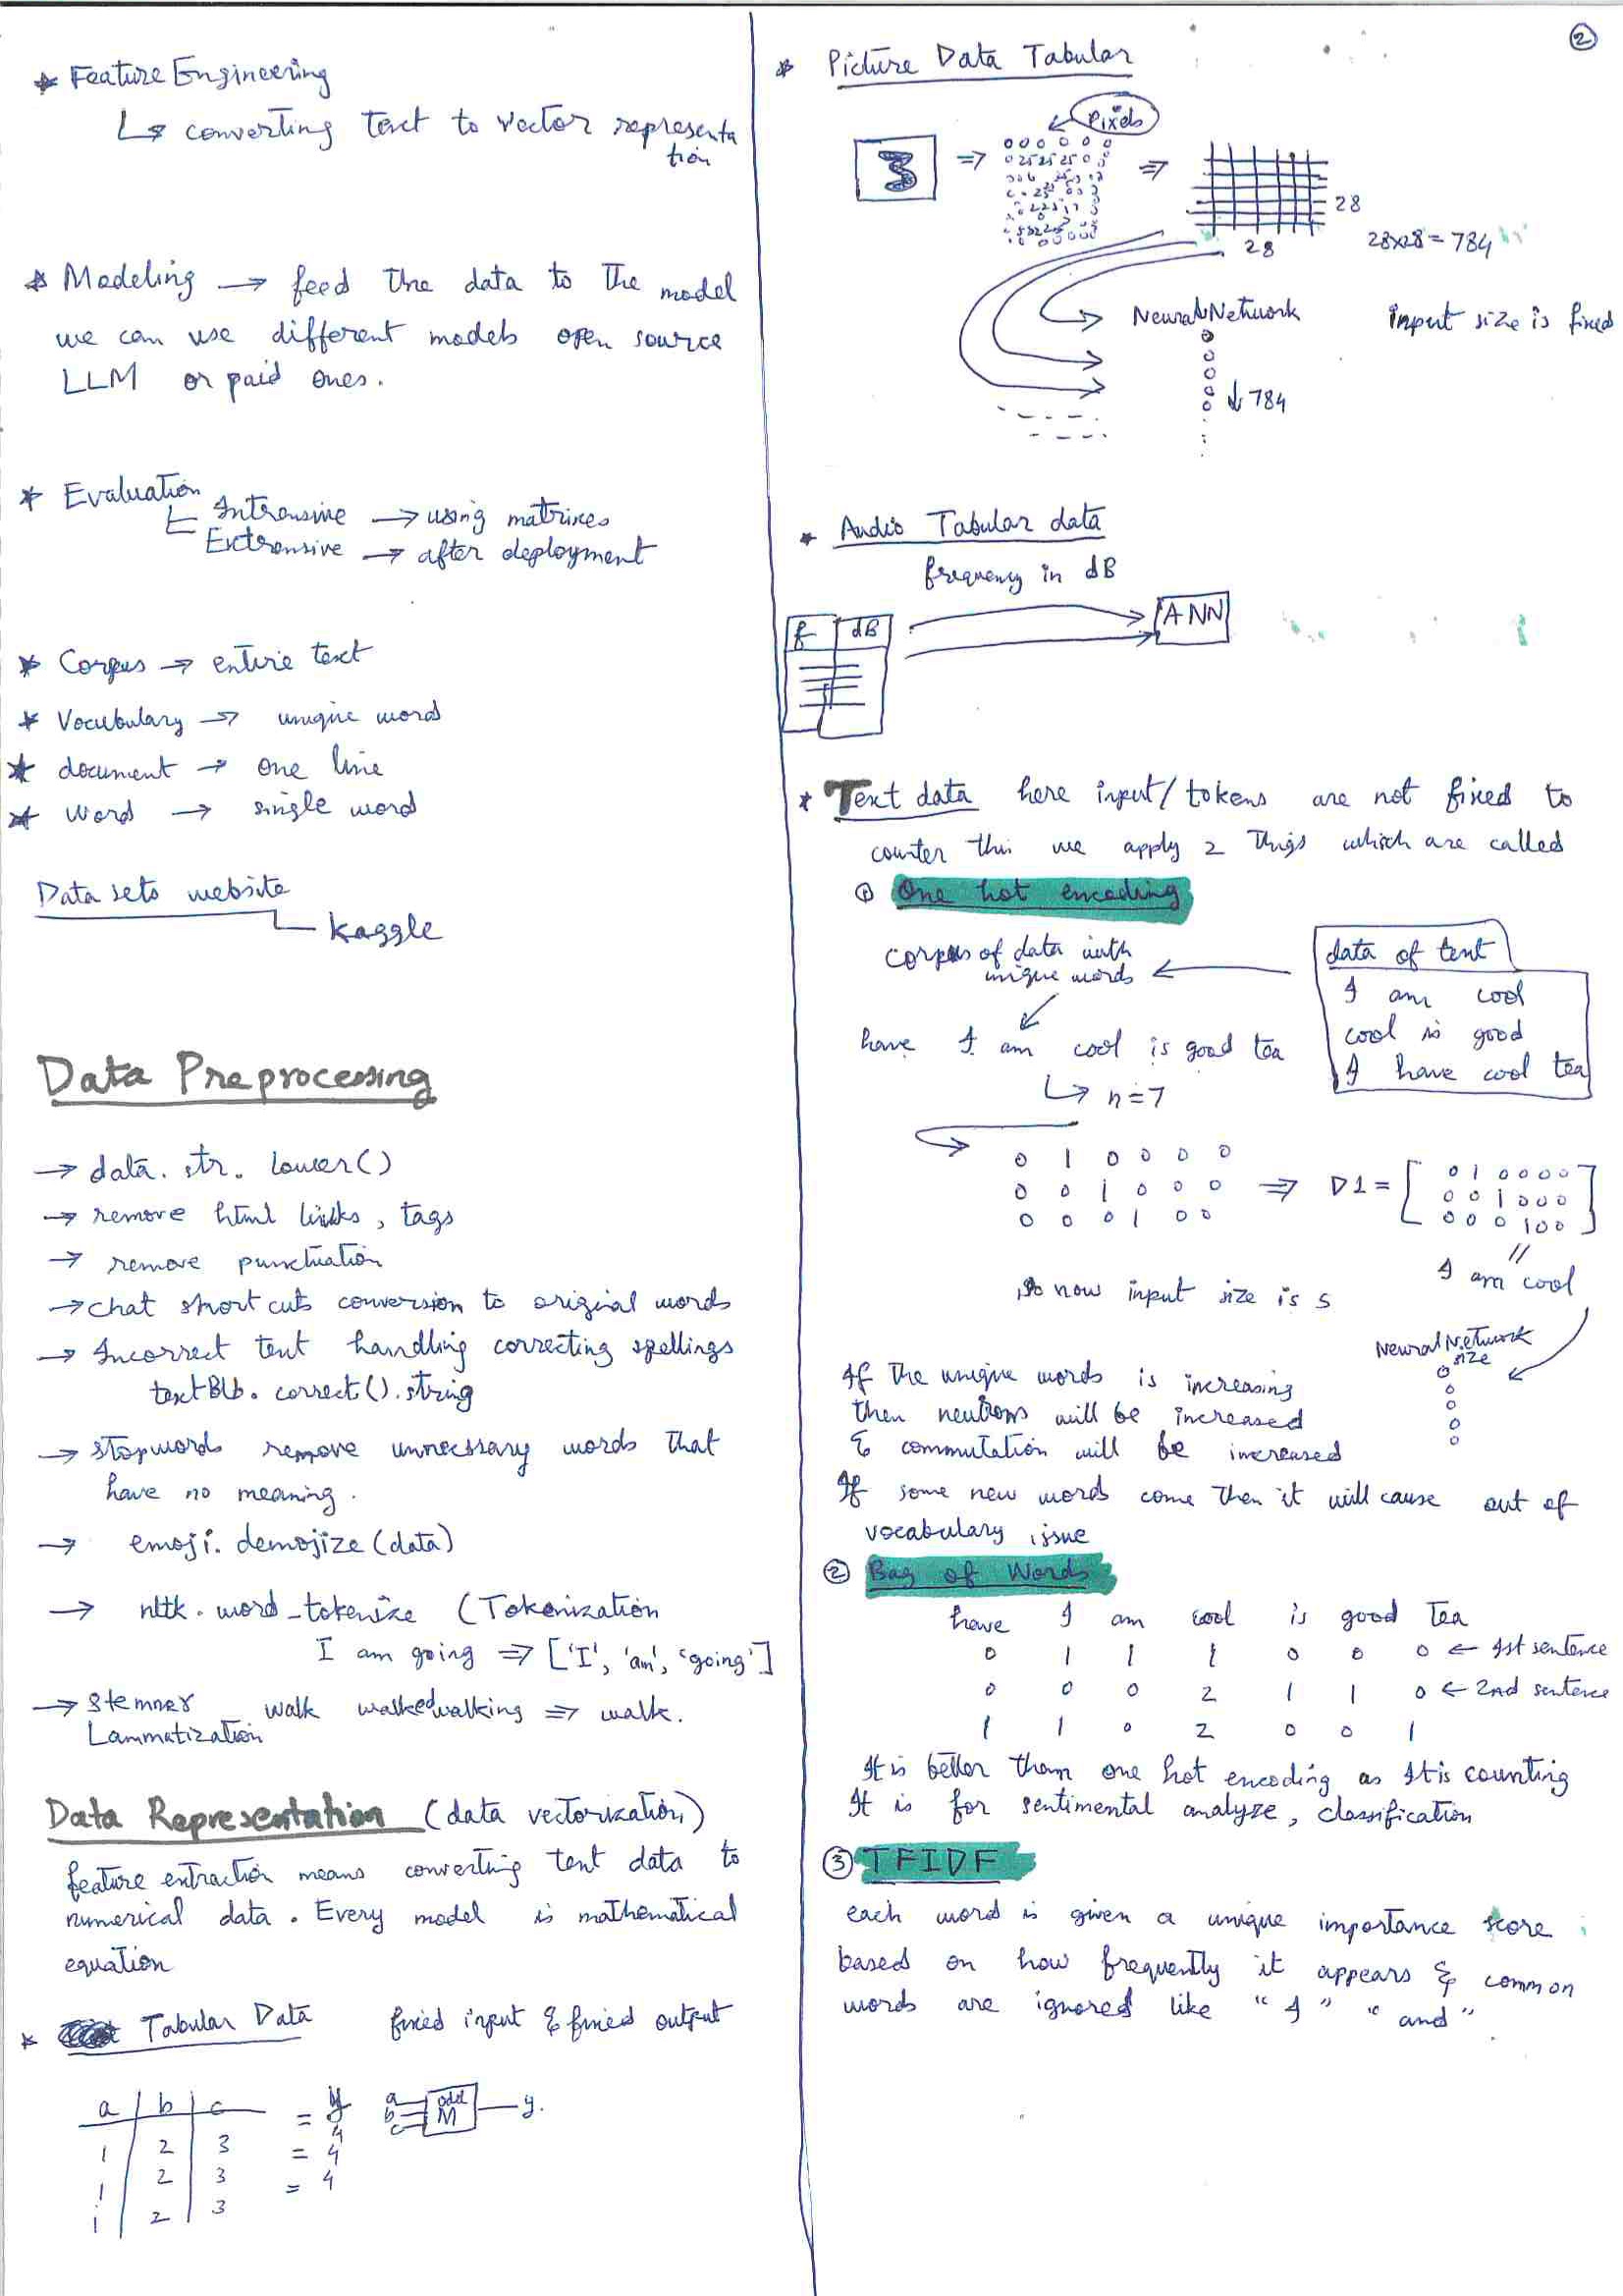 * Feature Engineering
↳ converting text to vector representa
tion
* Modeling → feed the data to the model
we can use different models open source
LLM or paid ones.
* Evaluation
Intrensive → using matrixes
Extrensive → after deployment
* Corpus → entire text
* Vocubulary → unique word
* document → one line
* Word → single word
Data sets website
Kaggle
Data Preprocessing
→ data. str. lower()
→ remove html links, tags
→ remove punctuation
→ chat short cuts conversion to original words
→ Incorrect text handling correcting spellings
textBlb. correct(). string
→ stopwords remove unnecessary words that
have no meaning.
→ emoji. demojize (data)
→ nltk. word_tokenize (Tokenization
I am going ⇒ ['I', 'am', 'going']
→ Stemner walk walked walking ⇒ walk.
Lammatization
Data Representation (data vectorization)
feature extraction means converting text data to
numerical data. Every model is mathematical
equation
* Tabular Data fixed input & fixed output
a b c = y
1 2 3 = 4
1 2 3 = 4
1 2 3
a
b
c
M
y.
2
* Picture Data Tabular
Pixels
3 ⇒ ⇒
28
28
28x28 = 784
Neural Network input size is fixed
↓ 784
* Audio Tabular data
frequency in dB
f dB
ANN
* Text data here input/tokens are not fixed to
counter this we apply 2 things which are called
① One hot encoding
corpus of data with
unique words
data of text
I am cool
cool is good
I have cool tea
have I am cool is good tea
↳ n = 7
0 1 0 0 0 0
0 0 1 0 0 0
0 0 0 1 0 0
⇒ D1 = [
0 1 0 0 0 0
0 0 1 0 0 0
0 0 0 1 0 0
]
I am cool
so now input size is 5
Neural Network
size
If the unique words is increasing
then neutrons will be increased
& commutation will be increased
If some new words come then it will cause out of
vocabulary issue
② Bag of Words
have I am cool is good tea
0 1 1 1 0 0 0 ← 1st sentence
0 0 0 2 1 1 0 ← 2nd sentence
1 1 0 2 0 0 1
It is better them one hot encoding as It is counting
It is for sentimental analyze, classification
③ TFIDF
each word is given a unique importance score
based on how frequently it appears & common
words are ignored like "I" "and"